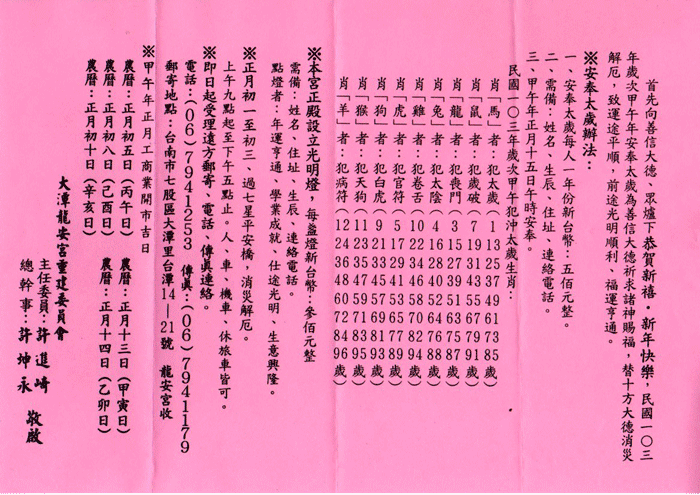 首先向善信大德、眾爐下恭賀新禧，新年快樂，民國一０三
年歲次甲午年安奉太歲為善信大德祈求諸神賜福，替十方大德消災
解厄，致運途平順，前途光明順利、福運亨通。
※安奉太歲辦法：
一、安奉太歲每人一年份新台幣：五佰元整。
二、需備：姓名、生辰、住址、連絡電話。
三、甲午年正月十五日午時安奉。
民國一０三年歲次甲午犯沖太歲生肖：
肖「馬」者：犯太歲（1 13 25 37 49 61 73 85歲）
肖「鼠」者：犯歲破（7 19 31 43 55 67 79 91歲）
肖「龍」者：犯喪門（3 15 27 39 51 63 75 87歲）
肖「兔」者：犯太陰（4 16 28 40 52 64 76 88歲）
肖「雞」者：犯卷舌（10 22 34 46 58 70 82 94歲）
肖「虎」者：犯官符（5 17 29 41 53 65 77 89歲）
肖「狗」者：犯白虎（9 21 33 45 57 69 81 93歲）
肖「猴」者：犯天狗（11 23 35 47 59 71 83 95歲）
肖「羊」者：犯病符（12 24 36 48 60 72 84 96歲）
※本宮正殿設立光明燈，每盞燈新台幣：參佰元整
需備：姓名、住址、生辰、連絡電話。
點燈者：年運亨通、學業成就、仕途光明、生意興隆。
※正月初一至初三、過七星平安橋，消災解厄。
上午九點起至下午五點止。人、車、機車、休旅車皆可。
※即日起受理遠方郵寄、電話、傳真連絡。
電話：(06)7941253 傳真：(06)7941179
郵寄地點：台南市七股區大潭里台潭14－21號 龍安宮收
※甲午年正月工商業開市吉日
農曆：正月初五日（丙午日） 農曆：正月十三日（甲寅日）
農曆：正月初八日（己酉日） 農曆：正月十四日（乙卯日）
農曆：正月初十日（辛亥日）
大潭龍安宮重建委員會
主任委員：許進崎
總幹事：許坤永 敬啟